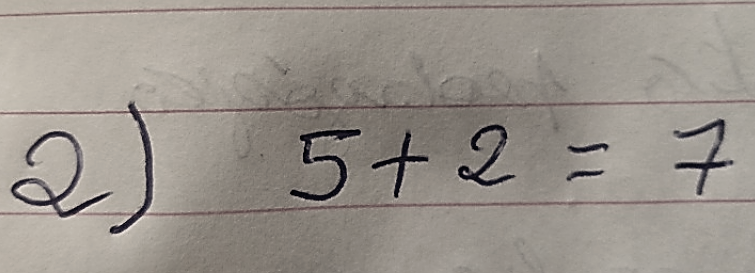 2) 5+2 = 7